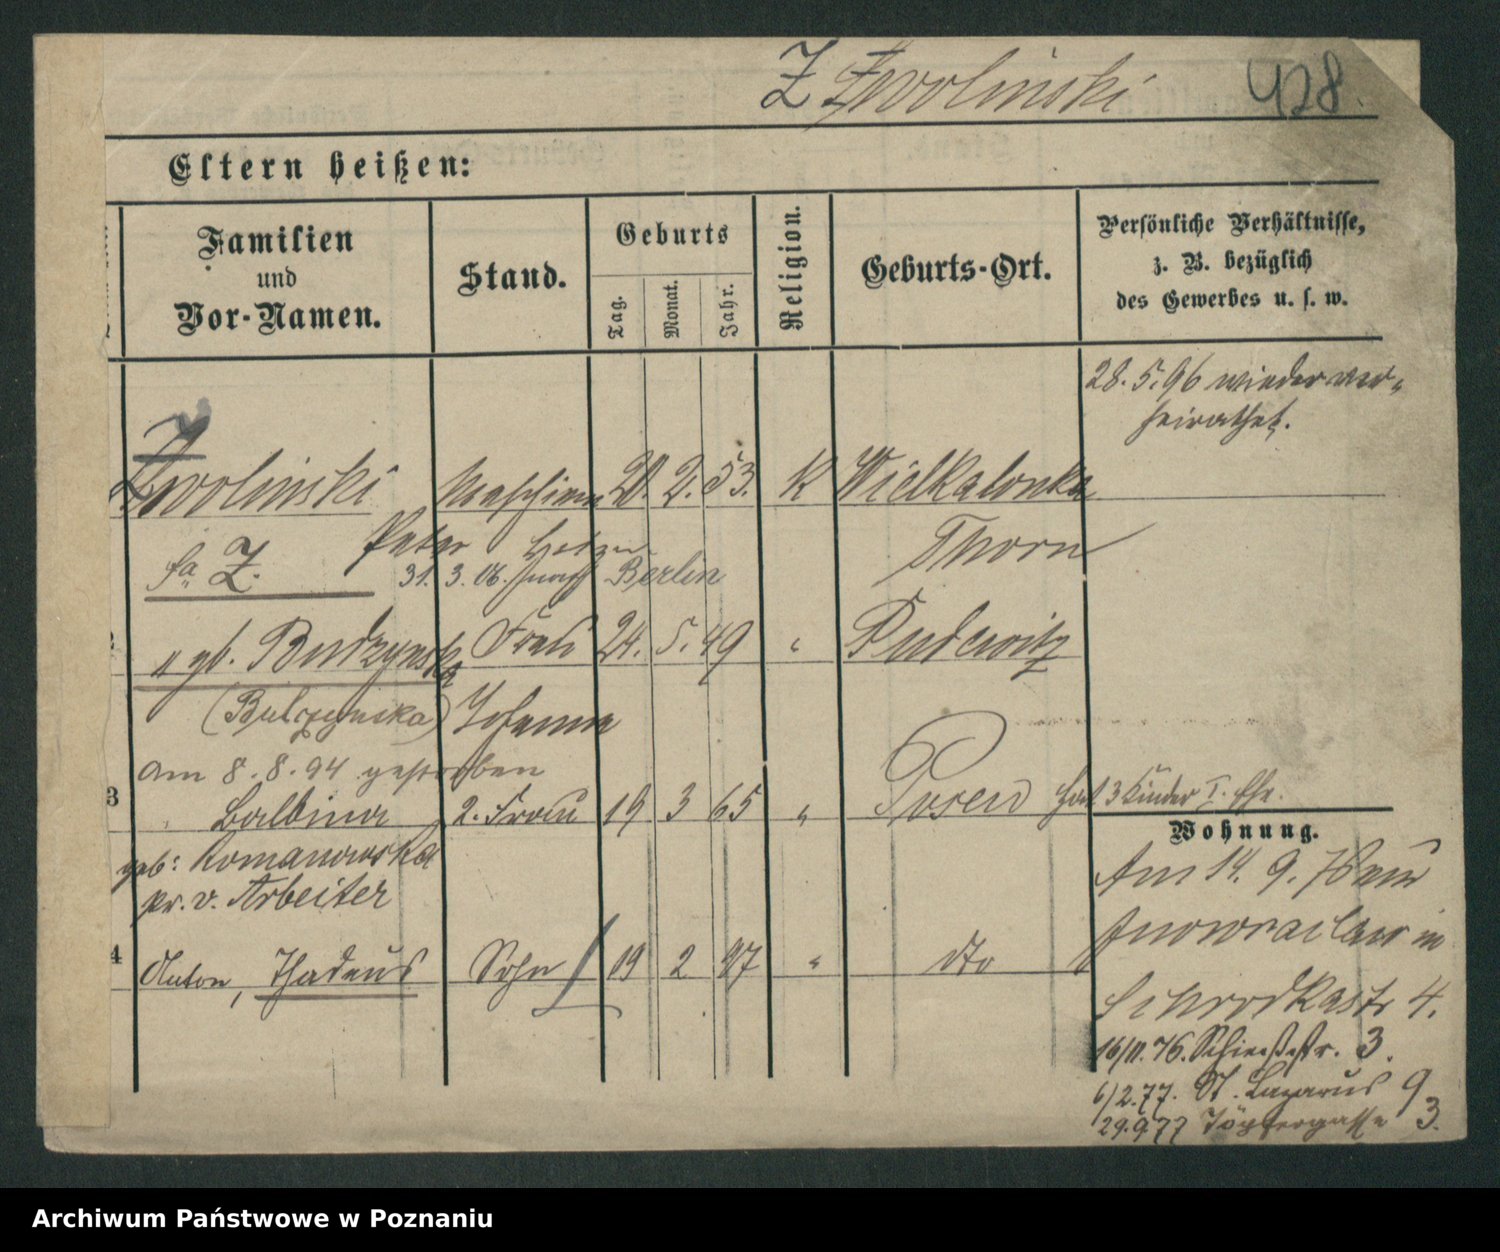 Z Zwolinski 428.
Eltern heißen:
Familien
und
Vor-Namen.
Stand.
Geburts
Tag.
Monat.
Jahr.
Religion.
Geburts-Ort.
Persönliche Verhältnisse,
z. B. bezüglich
des Gewerbes u. s. w.
28. 5. 96 wieder ver-
heirathet.
Z
Zwolinski Maschinen 20. 2. 53. K Wielkalonka
Peter Heizer Thorn
Z. 31. 3. 06. nach Berlin
" gb. Budzynska Frau 24. 5. 49 " Pudewitz
(Bulczynska) Johanna
am 8. 8. 94 gestorben
3 Balbina 2. Frau 19 3 65 " Posen hat 3 Kinder I. Ehe.
geb: Romanowska
pr. v. Arbeiter
Wohnung.
Am 14. 9. 76 von
Inowraclaw in
Schrodkastr 4.
4 Anton, Thadeus Sohn 19 2 97 " dto
16/11. 76. Schießstr. 3.
6/2. 77. St. Lazarus 9
29.9.77 Töpfergasse 3.
Archiwum Państwowe w Poznaniu